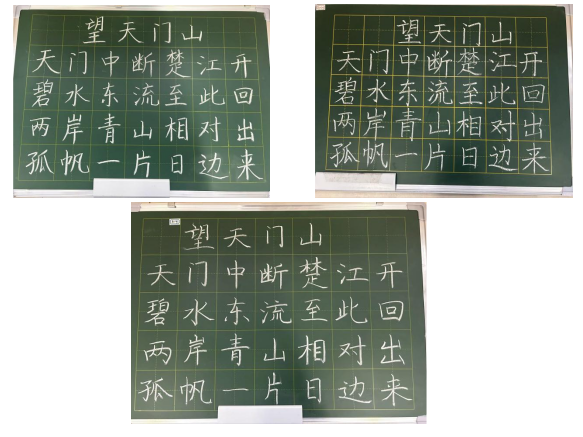 望天门山
天门中断楚江开
碧水东流至此回
两岸青山相对出
孤帆一片日边来
望天门山
天门中断楚江开
碧水东流至此回
两岸青山相对出
孤帆一片日边来
望天门山
天门中断楚江开
碧水东流至此回
两岸青山相对出
孤帆一片日边来